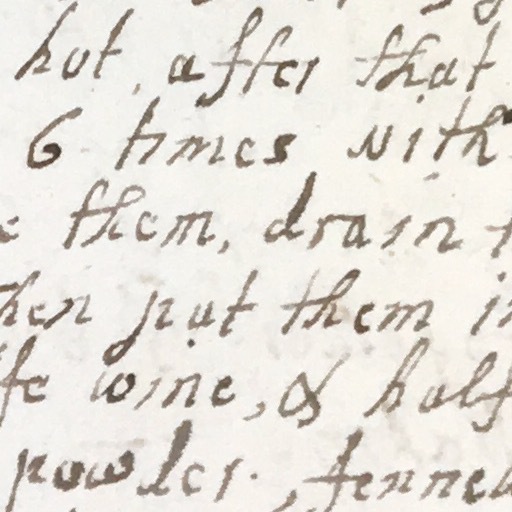 hot, after that
6 times with
them, drain
then put them in
wine, & half
powder, fennel